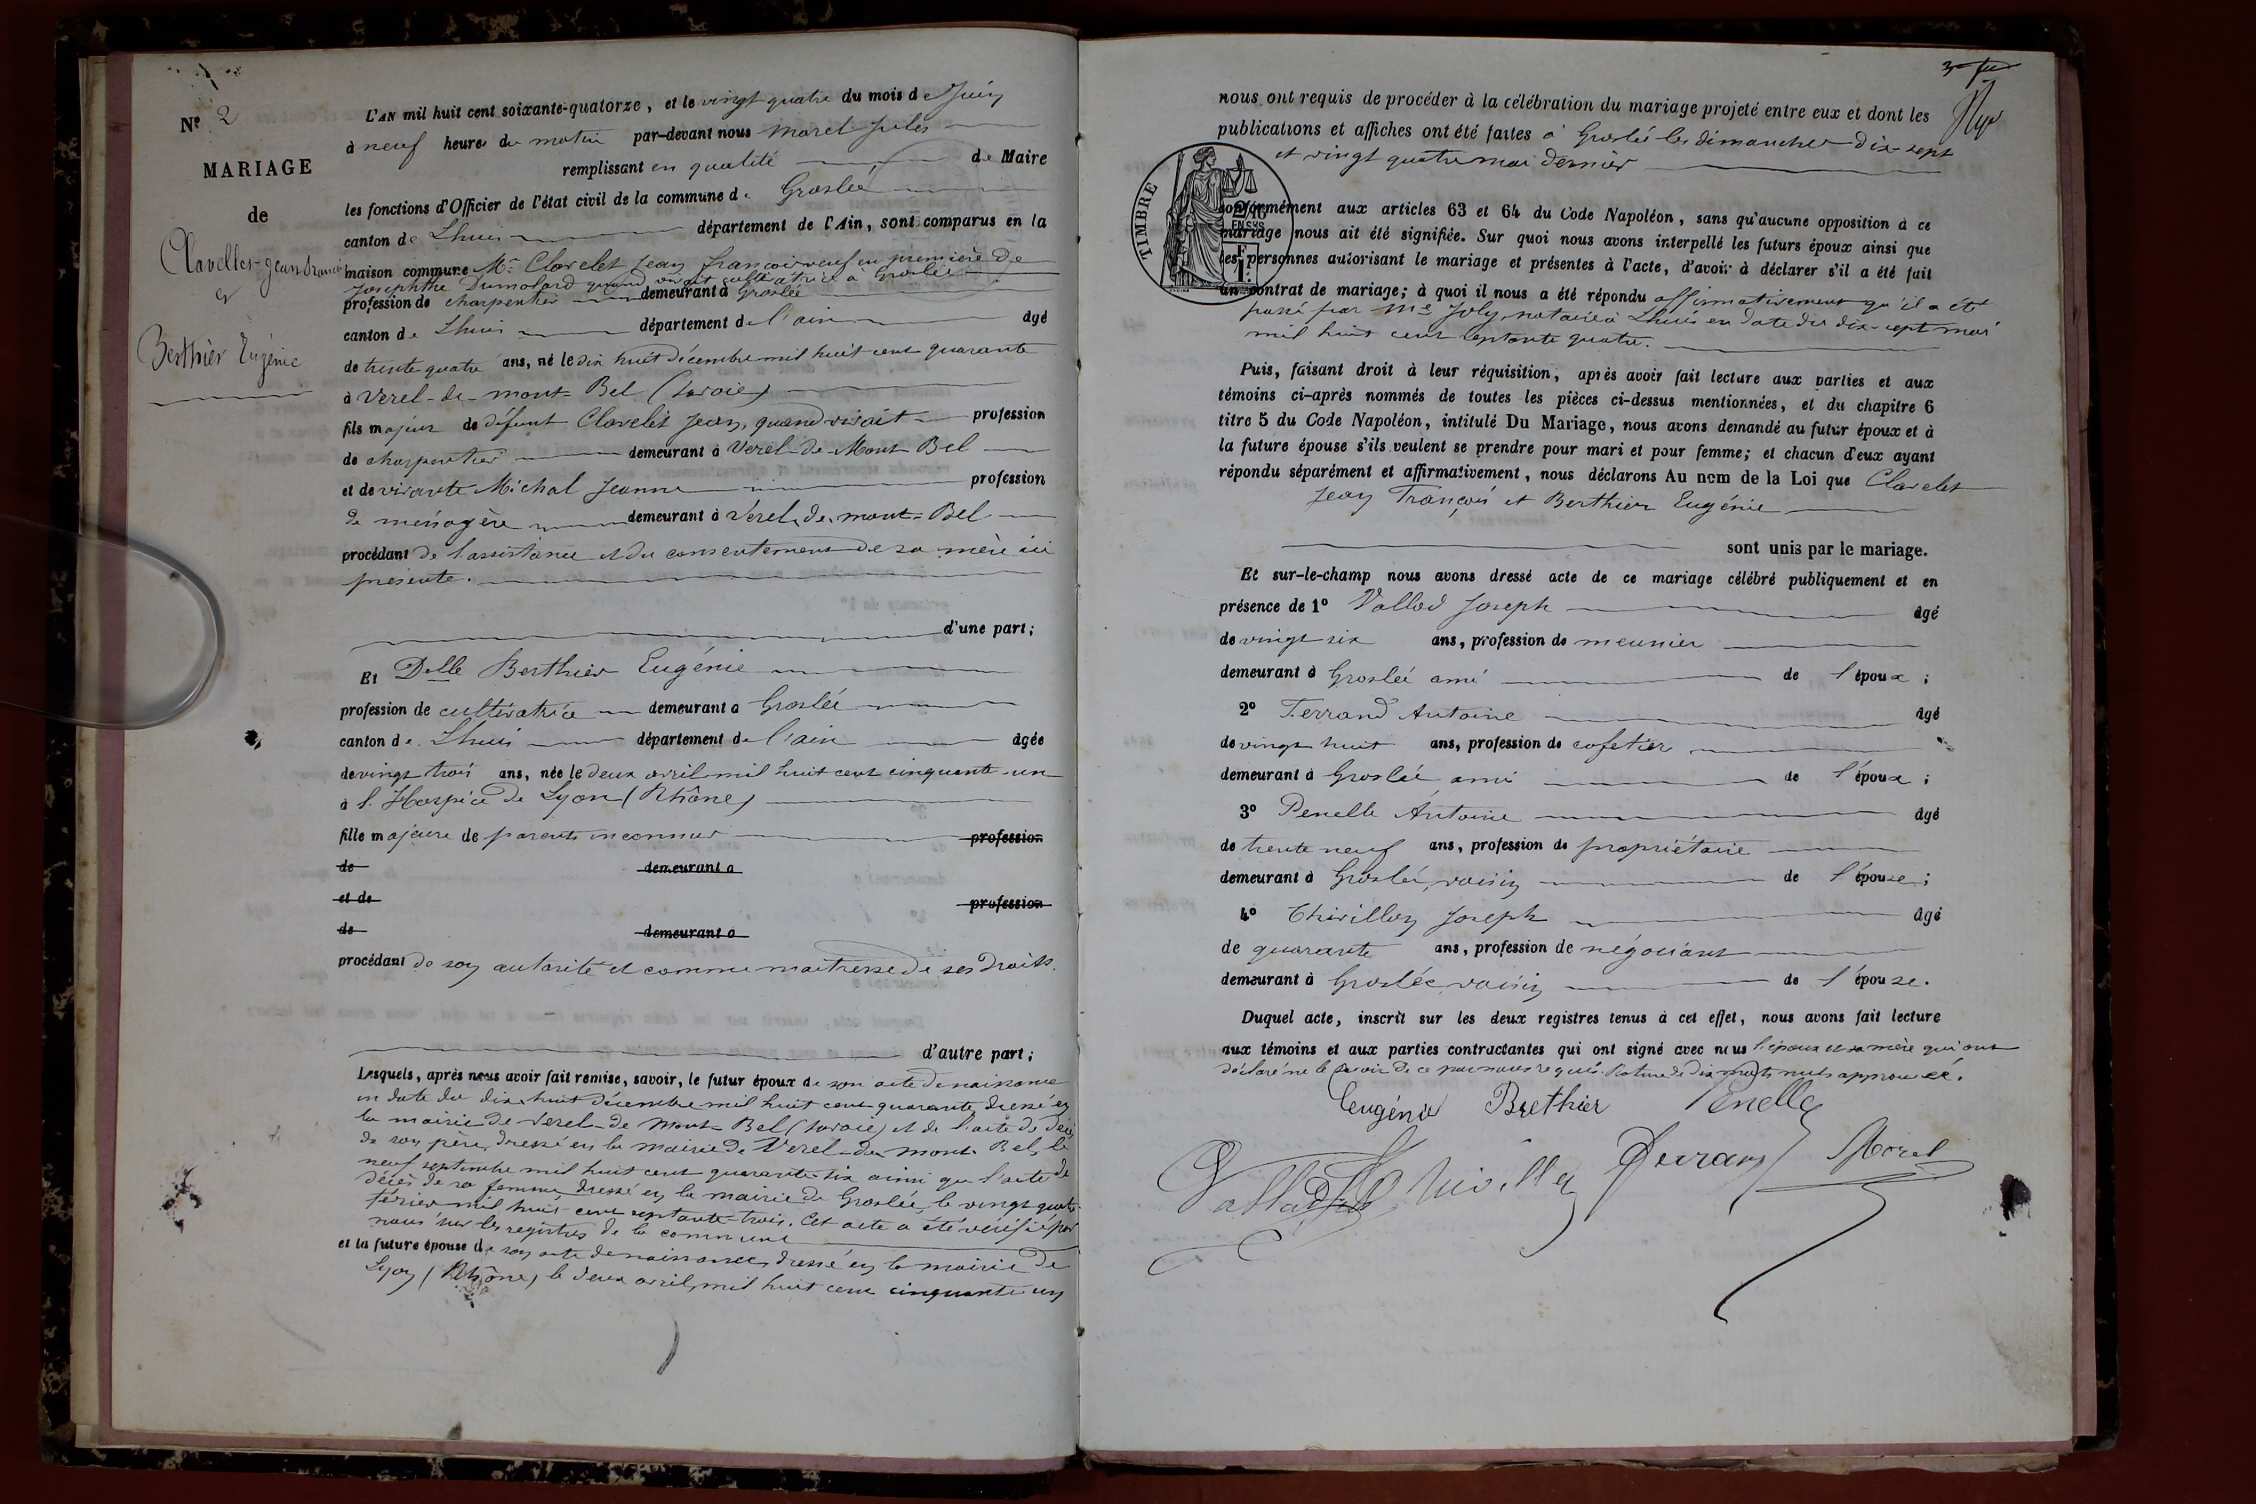 Nº 2
MARIAGE
de
Clavelet Jean François
et
Berthier Eugénie
L'AN mil huit cent soixante-quatorze, et le vingt quatre du mois de Juin
à neuf heures du matin par-devant nous Morel Jules
remplissant en qualité de Maire
les fonctions d'Officier de l'état civil de la commune de Groslée
canton de Lhuis département de l'Ain, sont comparus en la
maison commune Mr Clavelet Jean François veuf en première de
Josephthe Dumolard quand vivait cultivatrice à Groslée
profession de charpentier demeurant à Groslée
canton de Lhuis département de l'ain âgé
de trente quatre ans, né le dix huit décembre mil huit cent quarante
à Verel-de-mont-Bel (Savoie)
fils majeur de défunt Clavelet Jean, quand vivait profession
de charpentier demeurant à Verel-de-Mont Bel
et de vivante Michal Jeanne profession
de ménagère demeurant à Verel-de-mont-Bel
procédant de l'assistance et du consentement de sa mère ici
présente.
d'une part;
Et Delle Berthier Eugénie
profession de cultivatrice demeurant à Groslée
canton de Lhuis département de l'ain âgée
de vingt trois ans, née le deux avril mil huit cent cinquante-un
à l'Hospice de Lyon (Rhône)
fille majeure de parents inconnus profession
de demeurant à
et de profession
de demeurant à
procédant de son autorité et comme maitresse de ses droits.
d'autre part;
Lesquels, après nous avoir fait remise, savoir, le futur époux de son acte de naissance
en date du dix huit décembre mil huit cent quarante, dressé en
la mairie de Verel-de Mont-Bel (Savoie) et de l'acte de décès
de son père, dressé en la mairie de Verel-de-mont-Bel, le
neuf septembre mil huit cent quarante-six ainsi que l'acte de
décès de sa femme, dressé en la mairie de Groslée, le vingt quatre
février mil huit cent septante-trois. Cet acte a été vérifié par
nous sur les registres de la commune
et la future épouse de son acte de naissance, dressé en la mairie de
Lyon (Rhône) le deux avril, mil huit cent cinquante un
nous ont requis de procéder à la célébration du mariage projeté entre eux et dont les
publications et affiches ont été faites à Groslée les dimanches dix-sept
et vingt quatre mai dernier
TIMBRE
conformément aux articles 63 et 64 du Code Napoléon, sans qu'aucune opposition à ce
mariage nous ait été signifiée. Sur quoi nous avons interpellé les futurs époux ainsi que
les personnes autorisant le mariage et présentes à l'acte, d'avoir à déclarer s'il a été fait
un contrat de mariage; à quoi il nous a été répondu affirmativement qu'il a été
passé par Me Joly, notaire à Lhuis en date du dix-sept mai
mil huit cent septante quatre.
Puis, faisant droit à leur réquisition, après avoir fait lecture aux parties et aux
témoins ci-après nommés de toutes les pièces ci-dessus mentionnées, et du chapitre 6
titre 5 du Code Napoléon, intitulé Du Mariage, nous avons demandé au futur époux et à
la future épouse s'ils veulent se prendre pour mari et pour femme; et chacun d'eux ayant
répondu séparément et affirmativement, nous déclarons Au nom de la Loi que Clavelet
Jean François et Berthier Eugénie
sont unis par le mariage.
Et sur-le-champ nous avons dressé acte de ce mariage célébré publiquement et en
présence de 1º Vallod Joseph âgé
de vingt six ans, profession de meunier
demeurant à Groslée ami de l'époux;
2º Ferrand Antoine âgé
de vingt huit ans, profession de cafetier
demeurant à Groslée ami de l'époux;
3º Penelle Antoine âgé
de trente neuf ans, profession de propriétaire
demeurant à Groslée, voisin de l'épouse;
4º Thivillon Joseph âgé
de quarante ans, profession de négociant
demeurant à Groslée voisin de l'épouse.
Duquel acte, inscrit sur les deux registres tenus à cet effet, nous avons fait lecture
aux témoins et aux parties contractantes qui ont signé avec nous l'époux et sa mère qui ont
déclaré ne le savoir de ce par nous requis. Rature de dix mots nuls approuvée.
Eugénie Berthier Penelle
Vallod Thivillon Ferrand Morel